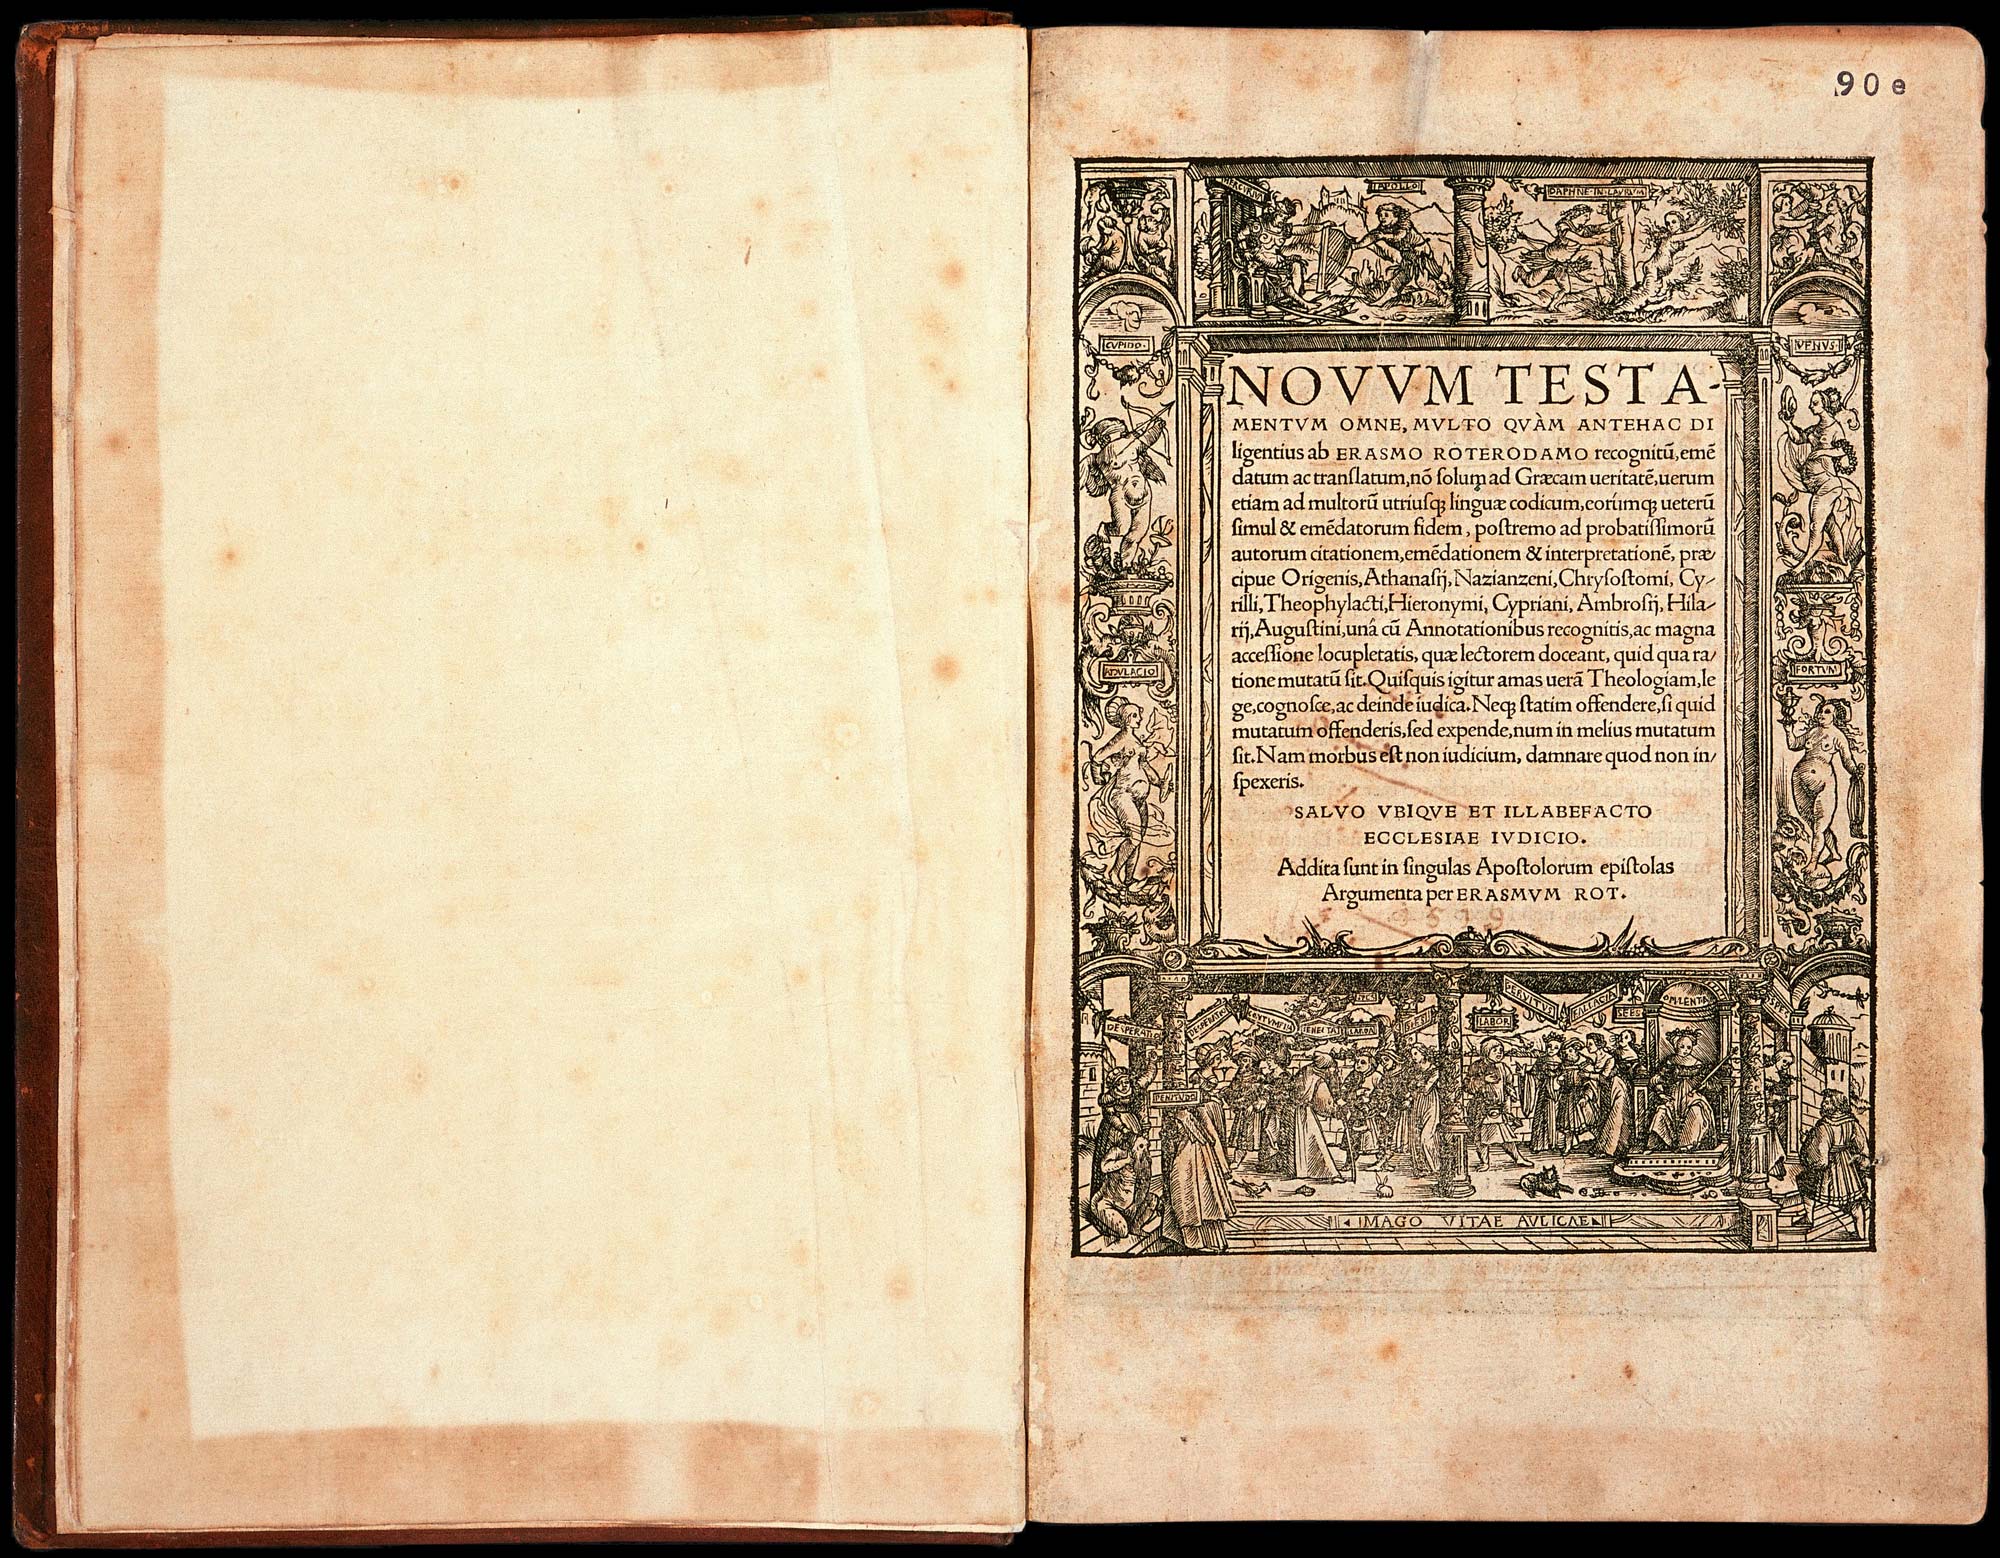 90 e
APOLLO
DAPHNE·IN·LAVRVM
CVPIDO·
VENVS·
NOVVM TESTA-
MENTVM OMNE, MVLTO QVÀM ANTEHAC DI
ligentius ab ERASMO ROTERODAMO recognitū, emē
datum ac translatum, nō solum ad Græcam ueritatē, uerum
etiam ad multorū utriusq; linguæ codicum, eorumq; ueterū
simul & emēdatorum fidem, postremo ad probatissimorū
autorum citationem, emēdationem & interpretationē, præ-
cipue Origenis, Athanasij, Nazianzeni, Chrysostomi, Cy-
rilli, Theophylacti, Hieronymi, Cypriani, Ambrosij, Hila-
rij, Augustini, unâ cū Annotationibus recognitis, ac magna
accessione locupletatis, quæ lectorem doceant, quid qua ra-
tione mutatū sit. Quisquis igitur amas uerā Theologiam, le
ge, cognosce, ac deinde iudica. Neq; statim offendere, si quid
mutatum offenderis, sed expende, num in melius mutatum
sit. Nam morbus est non iudicium, damnare quod non in-
spexeris.
SALVO VBIQVE ET ILLABEFACTO
ECCLESIAE IVDICIO.
Addita sunt in singulas Apostolorum epistolas
Argumenta per ERASMVM ROT.
ADVLACIO
FORTVN
DESPERATIO
SERVITVS
FALLACIA
OPVLENTIA
LABOR
SPES
IMAGO VITAE AVLICAE